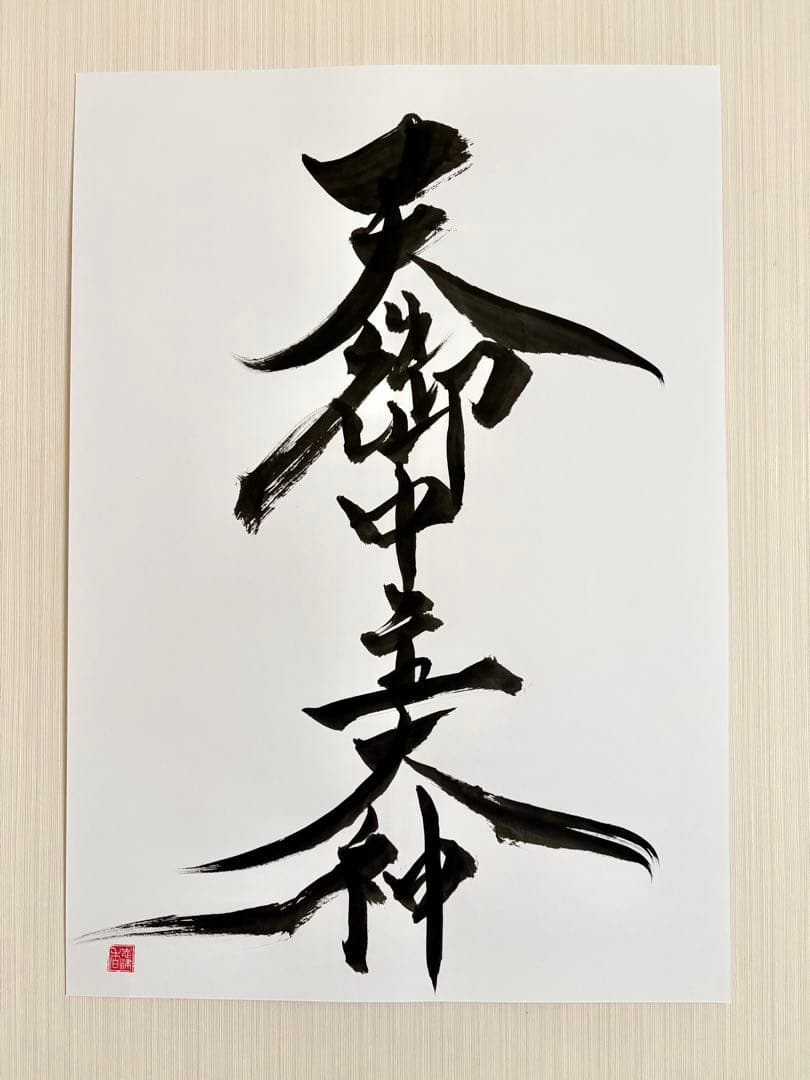 天御中主大神